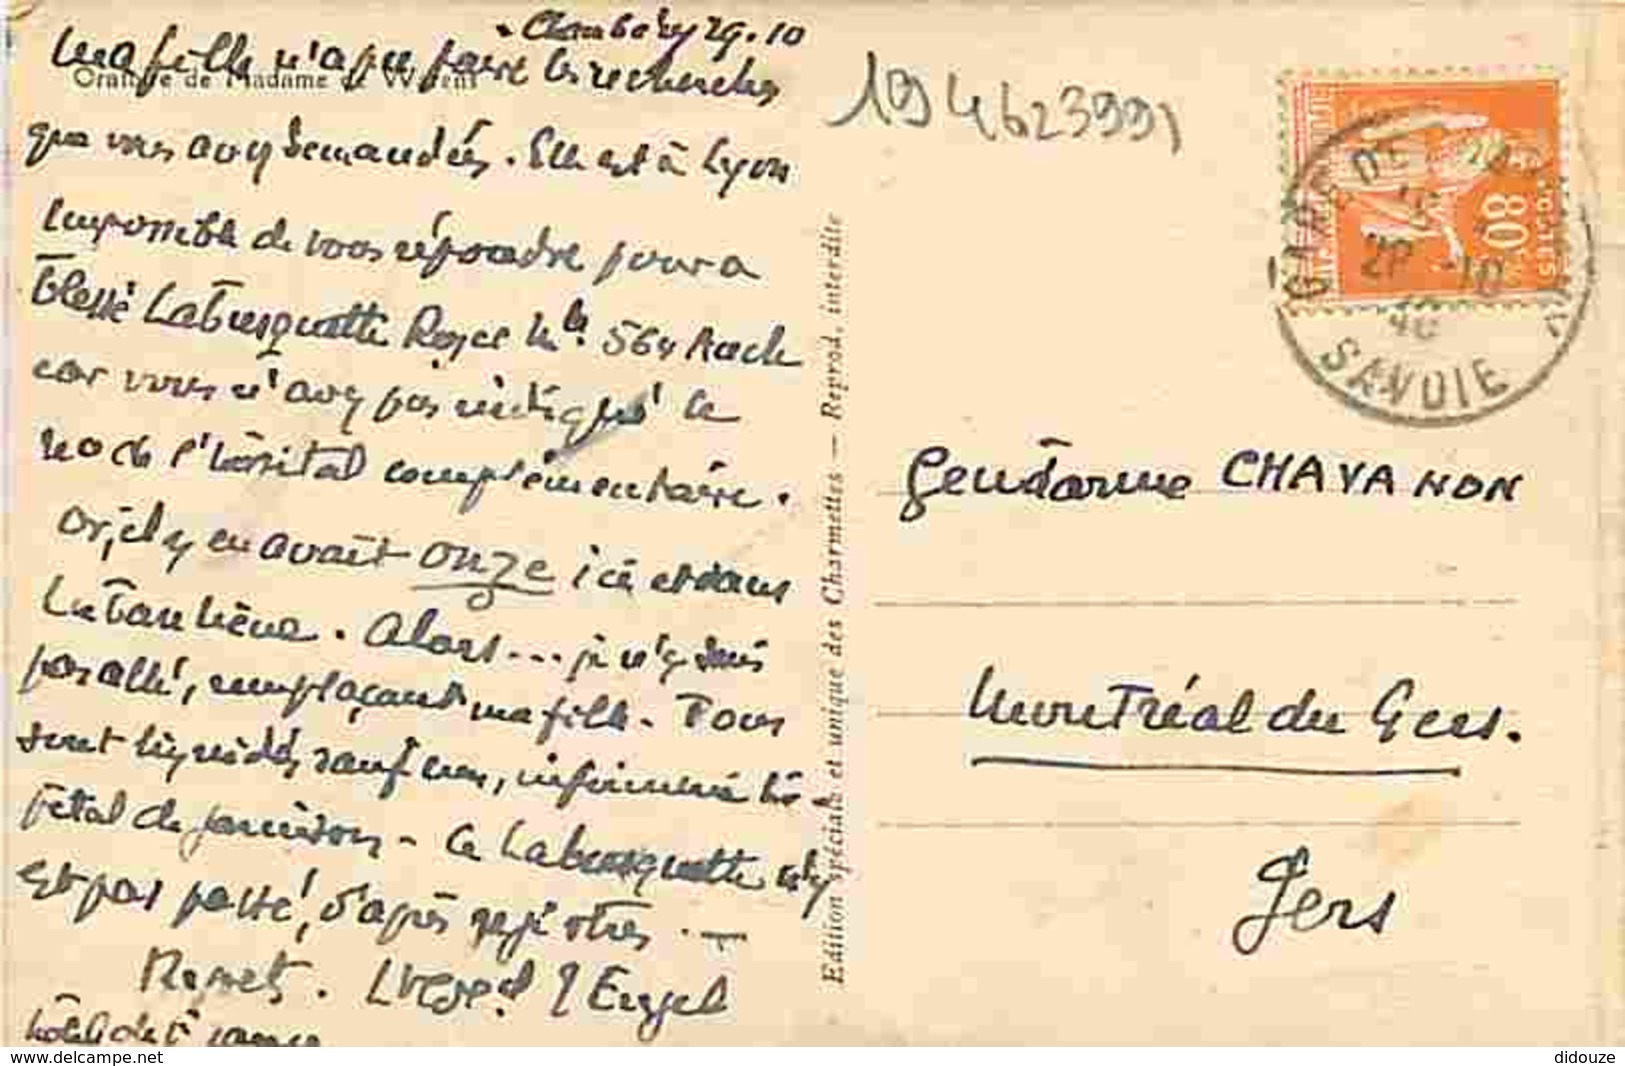 Chambéry 29.10
Ma fille n'a pu faire les recherches
Oratoire de Madame de Warens
que vous avez demandées. Elle est à Lyon
Impossible de vous répondre pour a
blessé Labusquette Roger Mle 564 Auch
car vous n'avez pas indiqué le
no de l'hôpital complémentaire.
Or, il y en avait onze ici et dans
la banlieue. Alors... je n'y suis
pas allé, remplaçant ma fille. Tous
sont liquidés sauf un, infirmerie hô-
pital de garnison - Ce Labusquette n'y
est pas passé, d'après registres.
Regrets.
hôtel de France
194623991
80c
GARE DE
29 -10
40
SAVOIE
Edition spéciale et unique des Charmettes — Reprod. interdite
Gendarme CHAVANON
Montréal du Gers.
Gers
delcampe.net
didouze